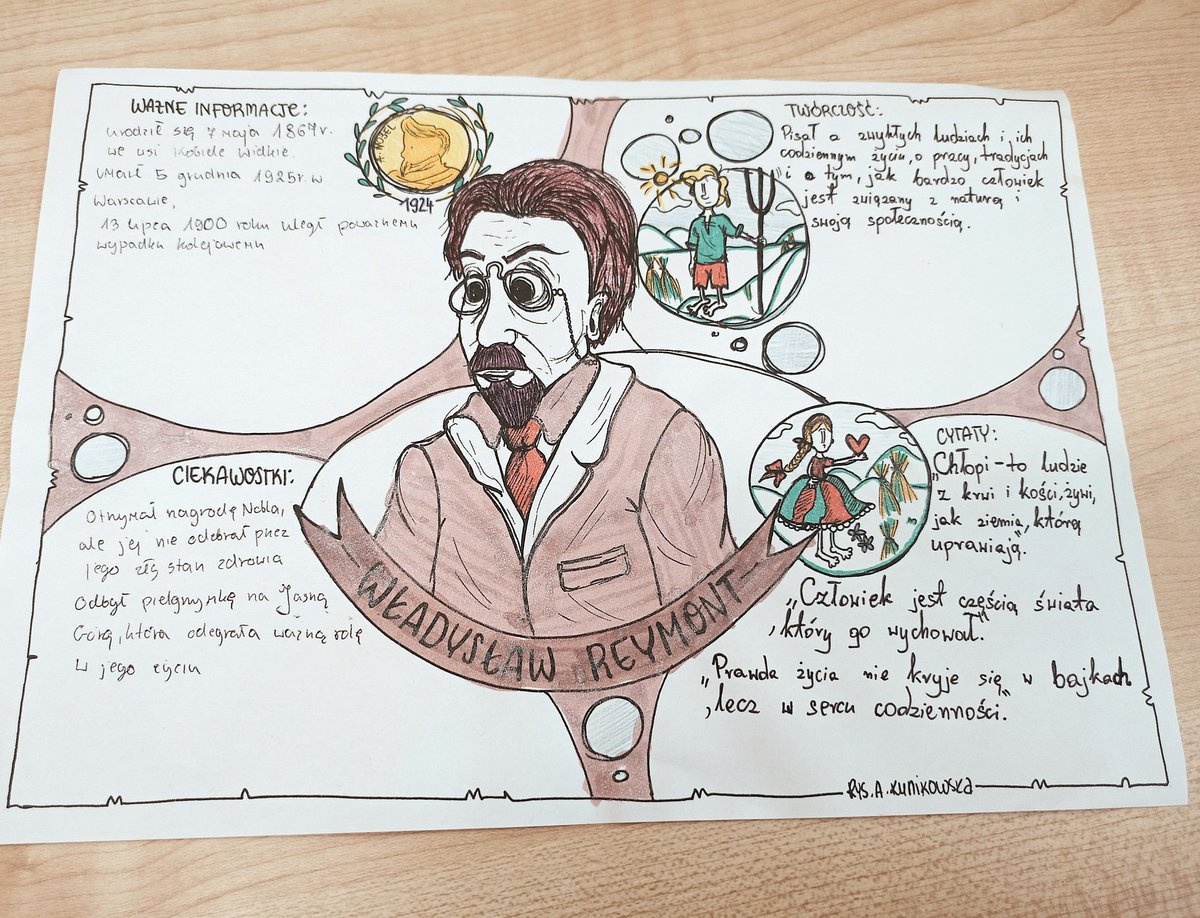 WAŻNE INFORMACJE:
urodził się 7 maja 1867r.
we wsi Kobiele Wielkie.
umarł 5 grudnia 1925r. w
Warszawie,
13 lipca 1900 roku uległ poważnemu
wypadku kolejowemu
NOBEL
1924
TWÓRCZOŚĆ:
Pisał o zwykłych ludziach i ich
codziennym życiu, o pracy, tradycjach
i o tym, jak bardzo człowiek
jest związany z naturą i
swoją społecznością.
CIEKAWOSTKI:
Otrzymał nagrodę Nobla,
ale jej nie odebrał przez
jego zły stan zdrowia
Odbył pielgrzymkę na Jasną
Górę, która odegrała ważną rolę
w jego życiu
WŁADYSŁAW REYMONT
CYTATY:
„Chłopi - to ludzie
z krwi i kości, żywi,
jak ziemia, którą
uprawiają".
„Człowiek jest częścią świata
, który go wychował."
„Prawda życia nie kryje się w bajkach
, lecz w sercu codzienności."
RYS. A. KUNIKOWSKA